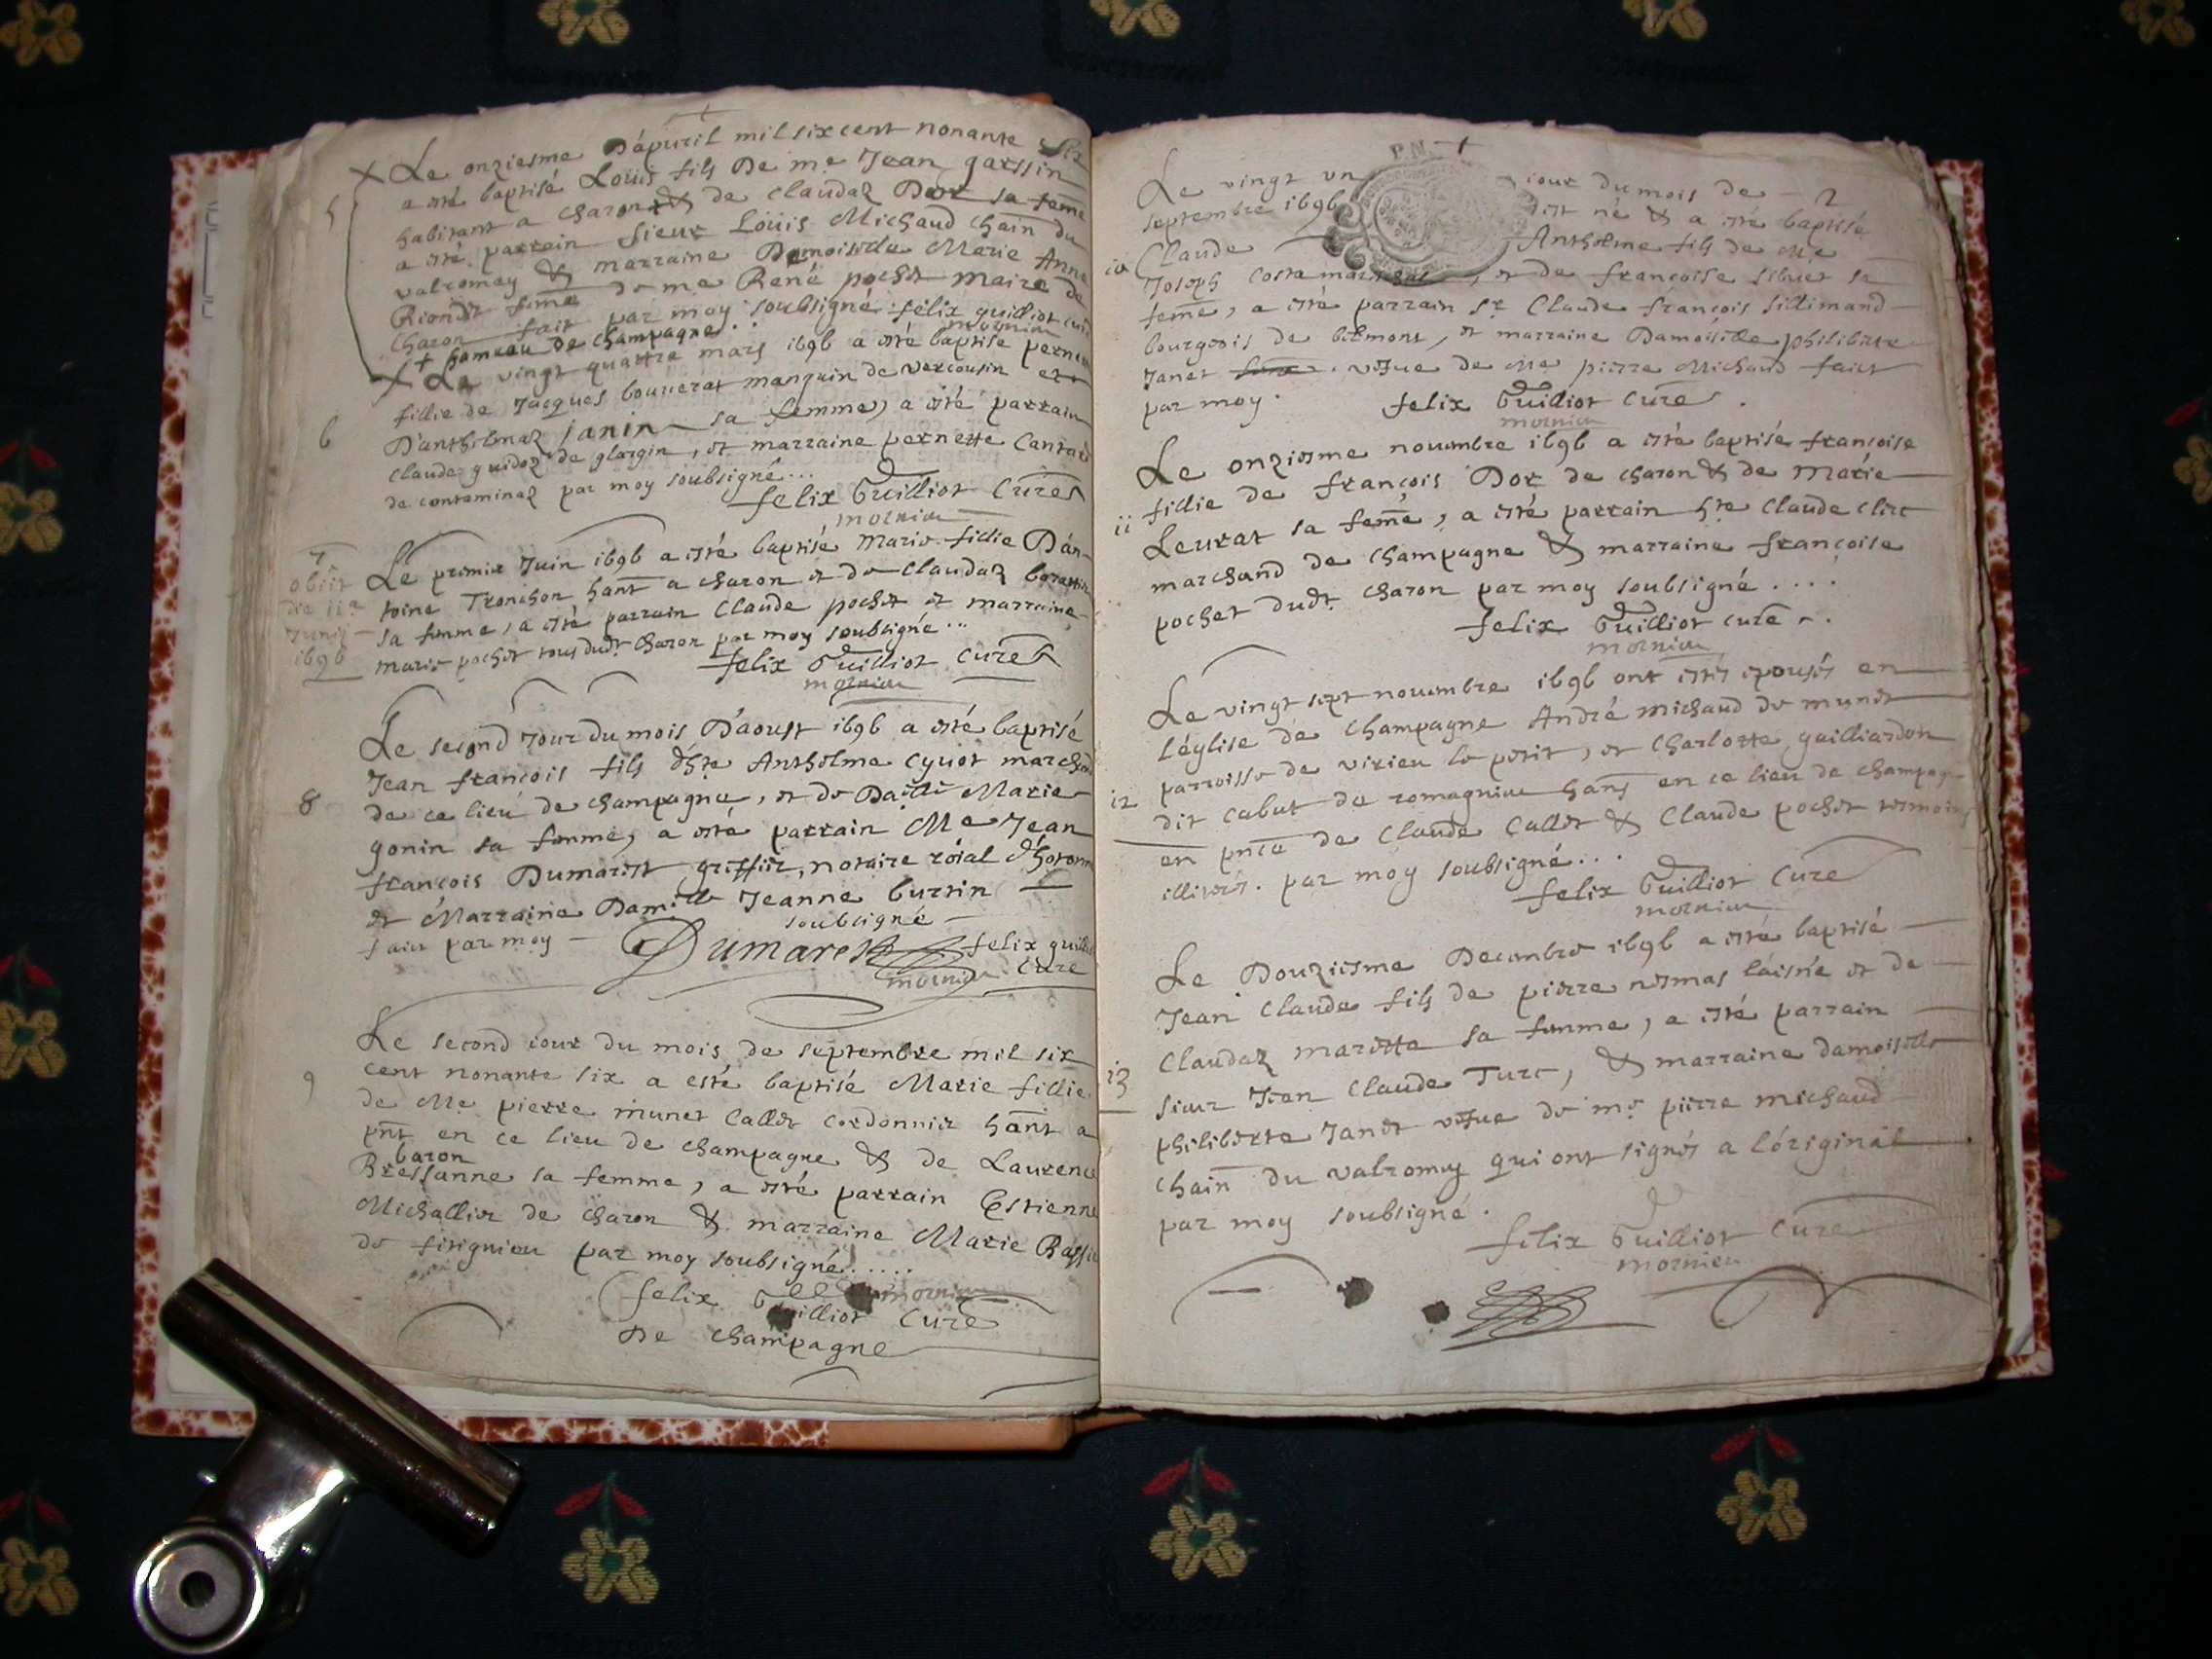 Le onziesme Dapuril mil six cent nonante six
a esté baptisé Loüis fils De me Jean garssin
5
habitant a charon & de Claudaz Dor sa feme
a esté parrain sieur Loüis Michaud chain du
valromey & marraine Damoiselle Marie Anne
Riondet feme de me René pochet maire de
charon fait par moy soubsigné felix guilliot curé
mornieu
+ hameau de champagne
Le vingt quattre mars 1696 a esté baptisé
fillie de Jacques bouuerat manguin de vercousin et
6
D'anthelmaz janin sa femme, a esté parrain
Claude guidoz de glargin, et marraine pernette Cantard
de contaminaz par moy soubsigné...
felix Guilliot Curé
mornieu
7
obiit
die 11a
Junij
1696
Le premier Juin 1696 a esté baptisé Marie fillie D'an-
toine Tronchon hant a charon et de Claudaz
sa femme, a esté parrain Claude pochet et marraine
marie pochet tous dudt charon par moy soubsigné...
felix Guilliot Curé
mornieu
Le second Jour du mois D'aoust 1696 a esté baptisé
Jean françois fils d'hte Anthelme Cyuot marchand
8
de ce lieu de champagne, et de Marie
gonin sa femme, a esté parrain Me Jean
françois Dumarest greffier, notaire roial
et Marraine Dam.lle Jeanne burtin
soubsigné
fait par moy
Dumarest
felix guilliot
mornieu curé
Le second iour du mois de septembre mil six
cent nonante six a esté baptisé Marie fillie
9
de Me pierre munet Callet cordonnier hant a
pnt en ce lieu de champagne & de Laurence
baron
Bressanne sa femme, a esté parrain Estienne
Michallier de charon & marraine Marie
de fitignieu par moy soubsigné.....
felix Guilliot Curé
mornieu
De champagne
P.N.
2
Le vingt un iour du mois de
septembre 1696 est né & a esté baptisé
Claude Anthelme fils de Me
10
Joseph Costa et de françoise sibuet sa
feme, a esté parrain Sr Claude françois sillimand
bourgeois de belmont, et marraine Damoiselle philiberte
Janet vefue de Me pierre Michaud faict
par moy. felix Guilliot Curé.
mornieu
Le onziesme nouembre 1696 a esté baptisée françoise
fillie de françois Dor de charon & de Marie
11
Leurat sa feme, a esté parrain hte Claude clerc
marchand de champagne & marraine françoise
pochet dudt charon par moy soubsigné....
felix Guilliot curé.
mornieu
Le vingt sept nouembre 1696 ont estés epousés en
l'église de champagne André michaud de munet
parroisse de virieu le petit, et Charlotte guilliardon
12
dit cabut de romagnieu hans en ce lieu de champag-
en pnce de Claude Callet & Claude pochet tesmoins
illiterés. par moy soubsigné...
felix Guilliot Curé
mornieu
Le Douziesme Decembre 1696 a esté baptisé
Jean Claude fils de pierre nermas laisné et de
Claudaz marette sa femme, a esté parrain
13
sieur Jean Claude Turc, & marraine damoiselle
philiberte Janet vefue de me pierre michaud
chain du valromey qui ont signés a l'original
par moy soubsigné.
felix Guilliot Curé
mornieu